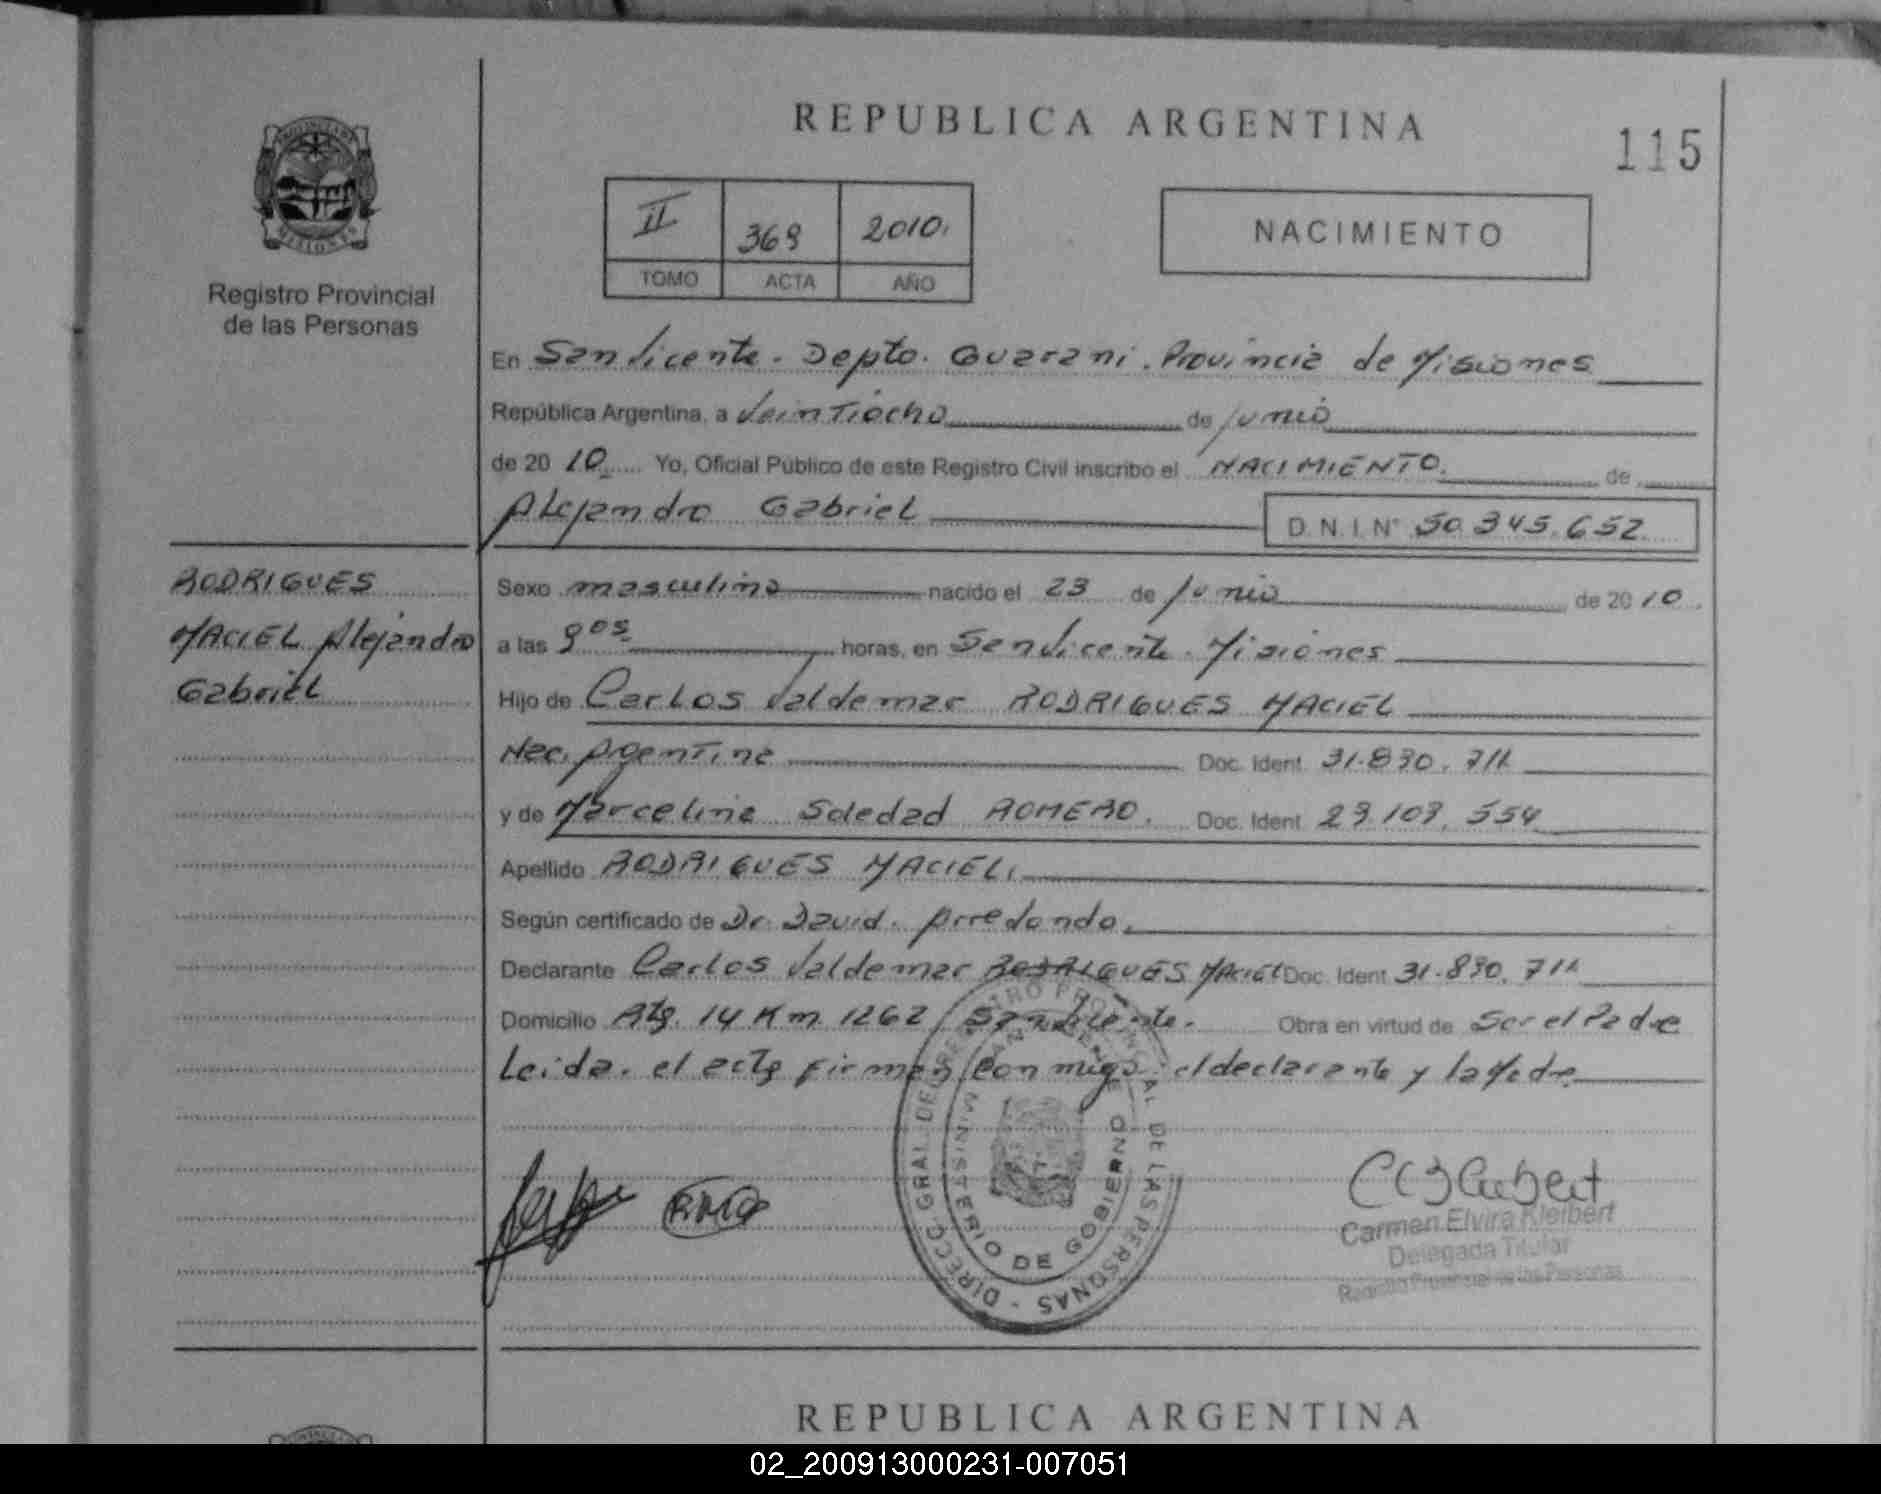 REPUBLICA ARGENTINA
115
PROVINCIA DE MISIONES
Registro Provincial
de las Personas
II 369 2010.
TOMO ACTA AÑO
NACIMIENTO
En San Vicente. Depto. Guarani. Provincia de Misiones
República Argentina, a Veintiocho de Junio
de 20 10 Yo, Oficial Público de este Registro Civil inscribo el NACIMIENTO. de
Alejandro Gabriel D. N. I. N° 50.345.652
RODRIGUES
MACIEL Alejandro
Gabriel
Sexo masculino nacido el 23 de Junio de 20 10.
a las 9 05 horas, en San Vicente. Misiones
Hijo de Carlos Valdemar RODRIGUES MACIEL
Nac. Argentina Doc. Ident. 31.830.711
y de Marcelina Soledad ROMERO. Doc. Ident. 29.103.554
Apellido RODRIGUES MACIEL.
Según certificado de Dr. David. Arredondo.
Declarante Carlos Valdemar RODRIGUES MACIEL Doc. Ident. 31.830.711
Domicilio Rta. 14 Km. 1262 San Vicente. Obra en virtud de Ser el Padre
Leida. el acta firman conmigo. el declarante y la Madre
DIRECC. GRAL. DEL REGISTRO PROVINCIAL DE LAS PERSONAS -
MINISTERIO DE GOBIERNO
Carmen Elvira Kleibert
Delegada Titular
Registro Provincial de las Personas
REPUBLICA ARGENTINA
02_200913000231-007051